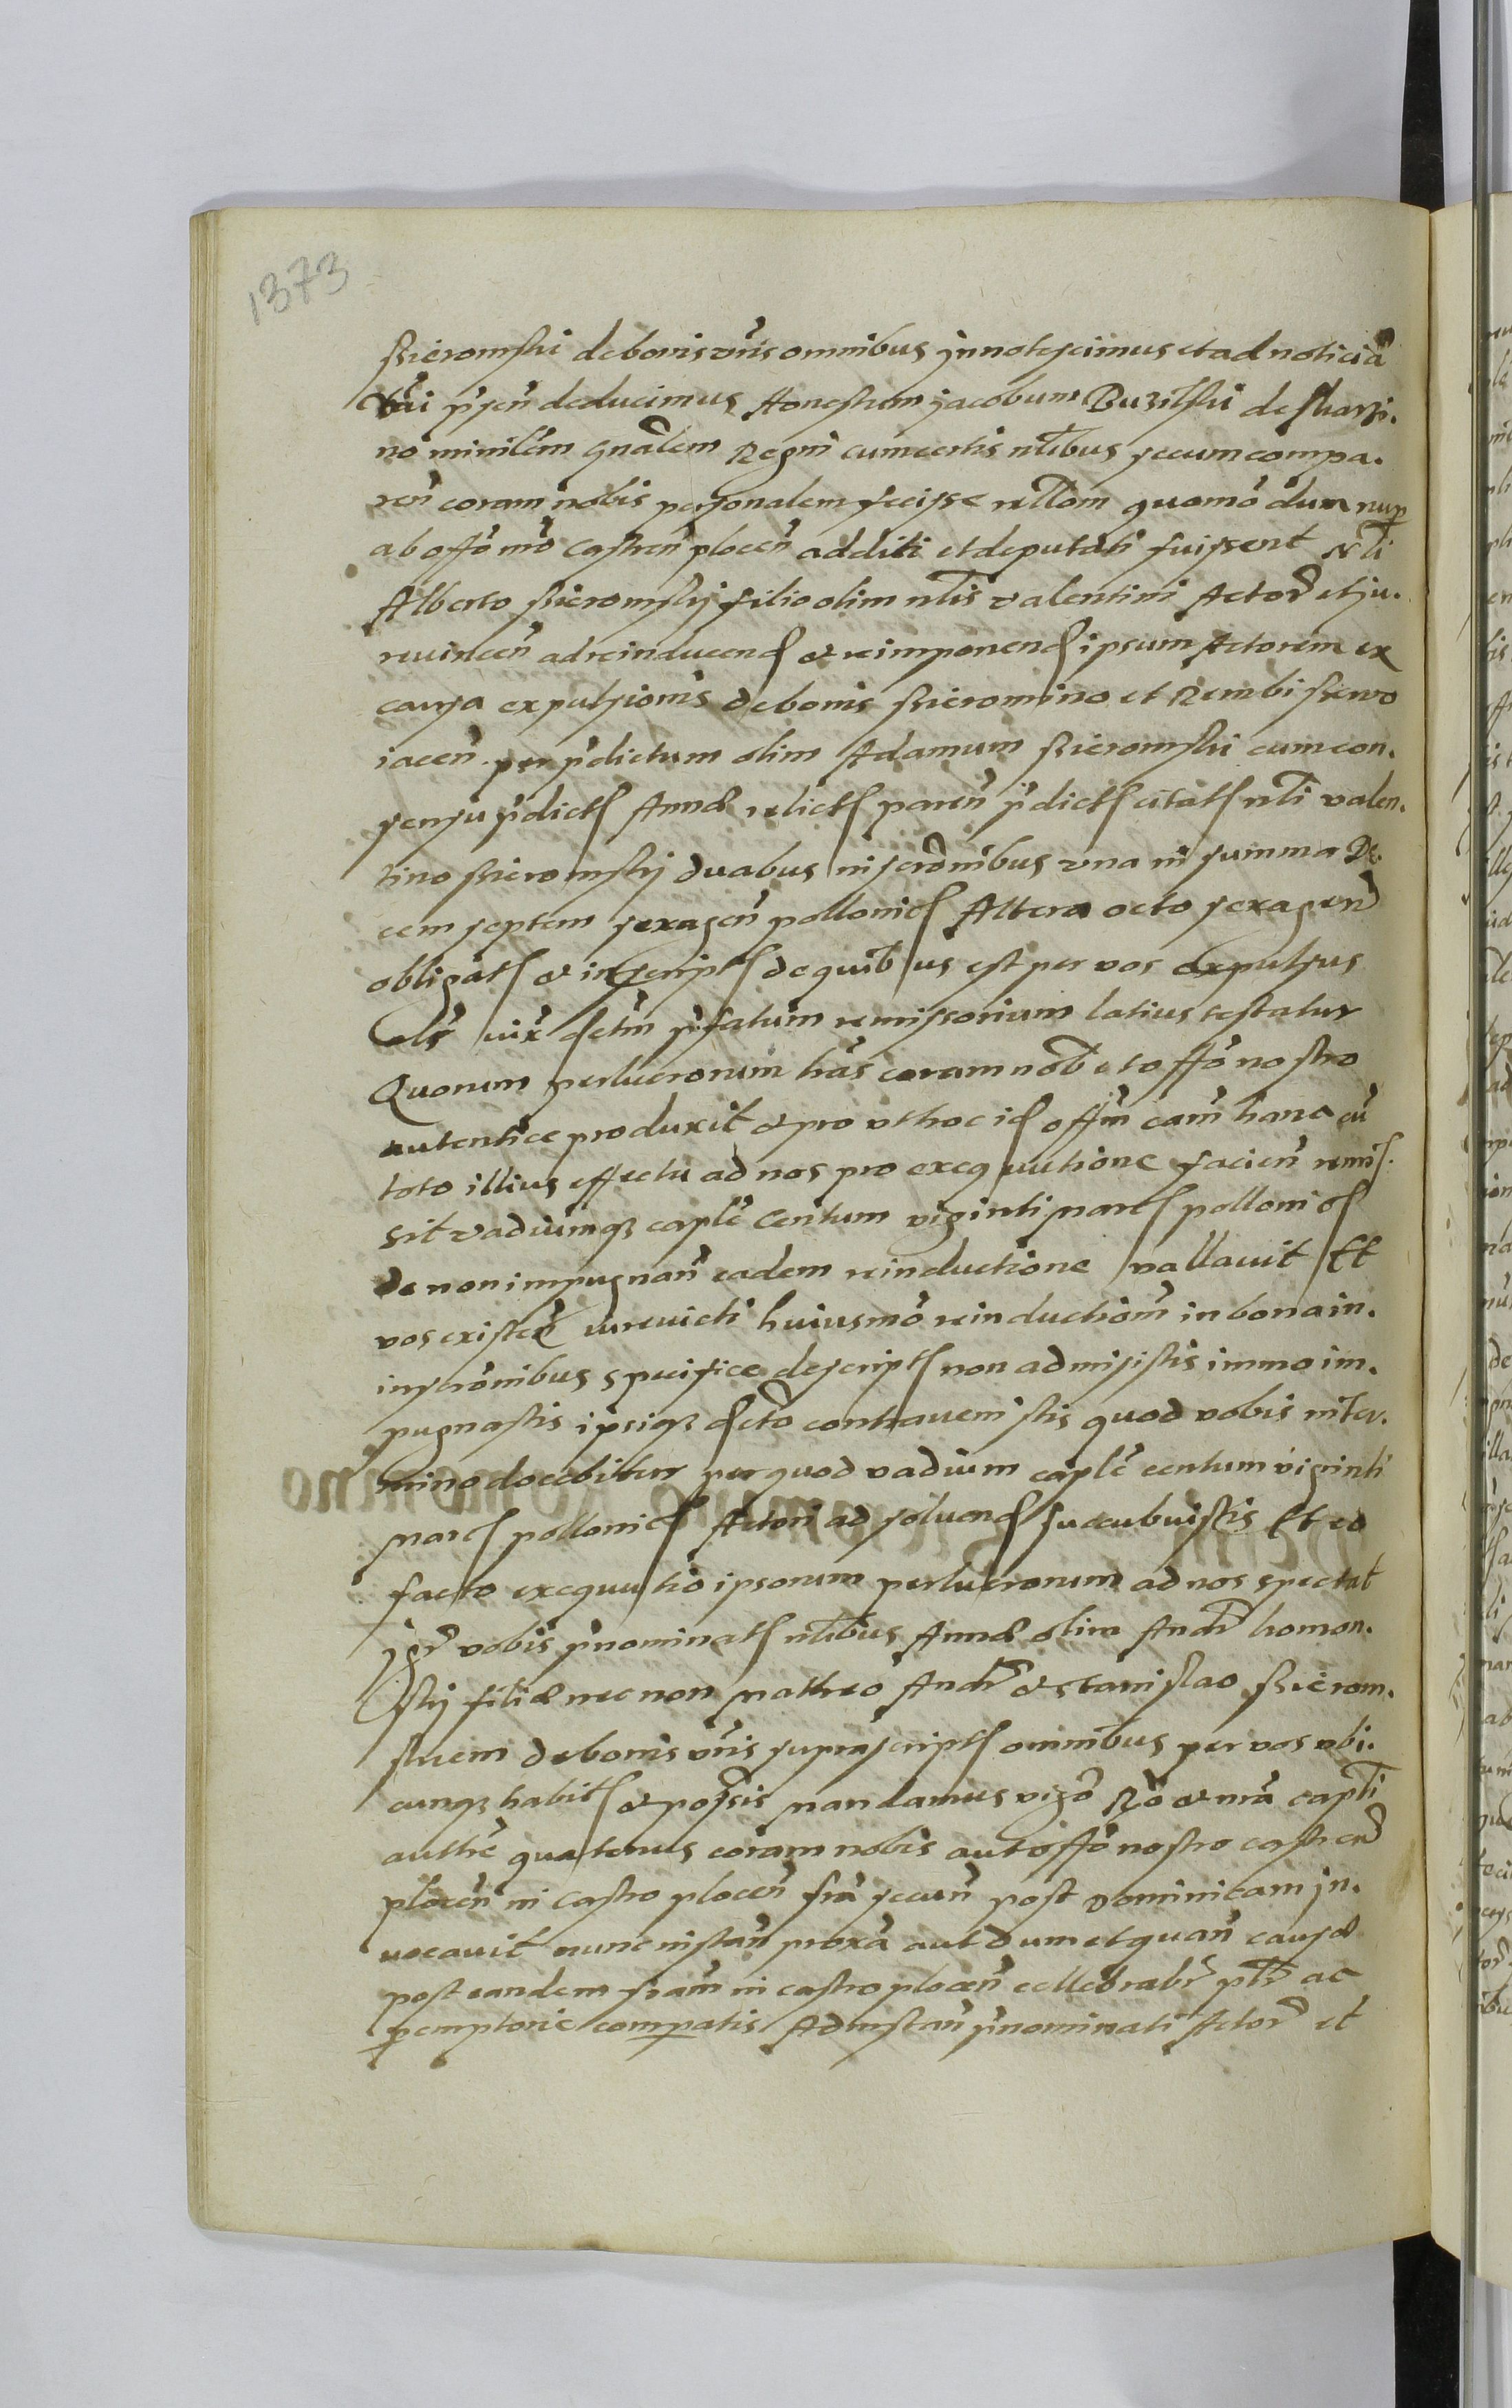 1373
Sieromski de bonis vr̃is omnibus jnnotescimus et ad noticiã
vr̃ãi p̃sen̄ deducimus Honestum jacobum Buzilski de
no minil̃em gn̄alem Regni cum certis nl̃ibus secum compa.
ren̄ coram nobis personalem fecisse rel̃lom quomō dum nup
ab offō mō castren̄ plocen̄ additi et deputati fuissent Nl̃i
Alberto Sieromskij filio olim nl̃is valentini Actor̃ et ju.
reuincen̄ ad reinducend et reimponend ipsum Actorem ex
causa expulsionis de bonis Sieromino et Rembi
iacen̄ per p̃dictum olim Adamum Sieromski cum con.
sensu p̃dict Annæ relict paren̄ p̃dict citat nl̃i valen.
tino Sieromskij duabus inscr̃onibus vna in summa De.
cem septem sexagen̄ pollonic Altera octo sexagen̄
obligat et inscript de quibus est per vos expulsus
als̃ vix detm̄ p̃fatum remissorium latius testatur
Quorum perlucrorum lr̃as coram nob̄ et offō nostro
autentice produxit et pro vt hoc id offm̄ cam̄ hanc cū
toto illius effectu ad nos pro exequutione facien̄ remis.
sit vadiumqȝ caplẽ Centum viginti marc pollonic
de non impugnan̄ eadem reinductione vallauit Et
vos existen̄ iureuicti huiusmō reinductiom̄ in bona in.
inscr̃onibus specifice descript non admisistis immo im.
pugnastis ipsiqȝ dcto contrauenistis quod vobis in ter.
mino docebitur per quod vadium caplẽ centum viginti
marc pollonic Actori ad soluend succubuistis Et eo
facto exequutio ipsorum perlucrorum ad nos spectat
jgr̃ vobis p̃nominat nl̃ibus Annæ olim Andr̃ homon.
skij filiæ necnon Matheo Andr̃ et Stanislao Sierom.
skiem de bonis vr̃is suprascript omnibus per vos vbi.
cunqȝ habit et possis mandamus vigō Rō et nr̃ã capl̃i
authẽ quatenus coram nobis aut offō nostro castren̄
plocen̄ in Castro plocen̄ fr̃ã secun̄ post dominicam jn.
uocauit nunc instan̄ proxã aut dum et quan̄ causæ
post eandem fr̃am̄ in castro plocen̄ cellebrabr̃ pl̃r ac
peremptorie compatis Ad instan̄ p̃nominati Actor̃ et